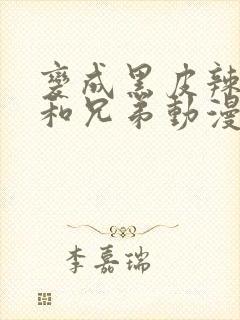 變成黑皮辣
和兄弟動漫
李嘉瑞